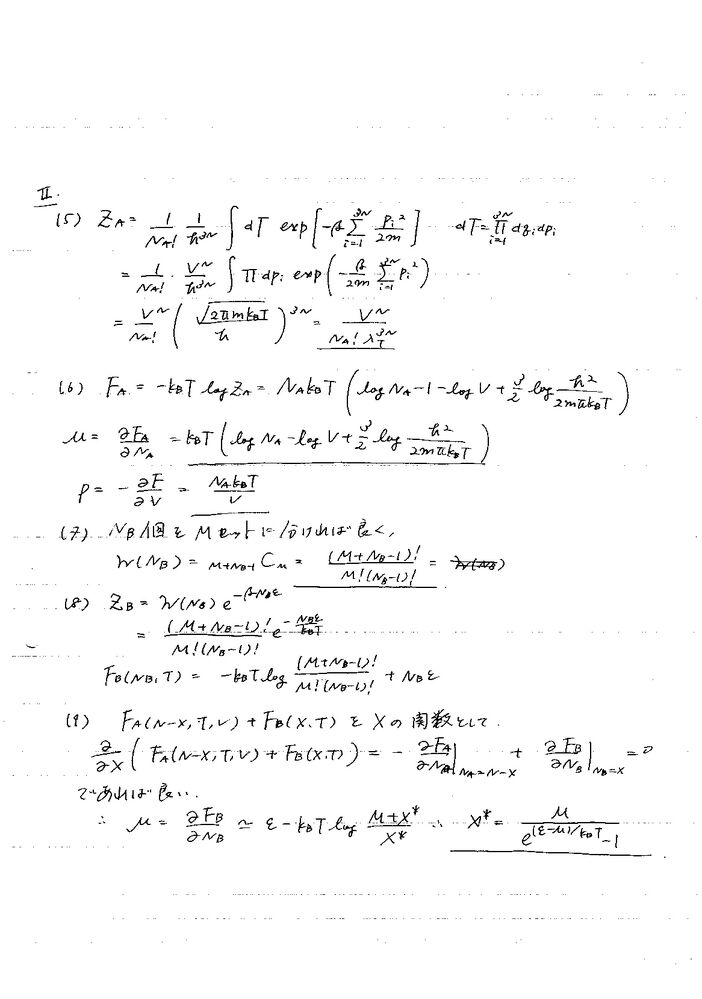 II.
(5) Z_A = \frac{1}{N_A!} \frac{1}{h^{3N}} \int dΓ exp[-β \sum_{i=1}^{3N} \frac{p_i^2}{2m}]   dΓ = \prod_{i=1}^{3N} dq_i dp_i
= \frac{1}{N_A!} \cdot \frac{V^N}{h^{3N}} \int Π dp_i exp(-\frac{β}{2m} \sum_{i=1}^{3N} p_i^2)
= \frac{V^N}{N_A!} (\frac{\sqrt{2πmk_BT}}{h})^{3N} = \frac{V^N}{N_A! λ_T^{3N}}
(6) F_A = -k_BT log Z_A = N_A k_BT (log N_A - 1 - log V + \frac{3}{2} log \frac{h^2}{2mπk_BT})
μ = \frac{∂F_A}{∂N_A} = k_BT (log N_A - log V + \frac{3}{2} log \frac{h^2}{2mπk_BT})
P = -\frac{∂F}{∂V} = \frac{N_A k_BT}{V}
(7) N_B個をMセットに分ければ良く,
W(N_B) = _{M+N_B-1}C_M = \frac{(M+N_B-1)!}{M!(N_B-1)!} =
(8) Z_B = W(N_B) e^{-βN_Bε}
= \frac{(M+N_B-1)!}{M!(N_B-1)!} e^{-\frac{N_Bε}{k_BT}}
F_B(N_B,T) = -k_BT log \frac{(M+N_B-1)!}{M!(N_B-1)!} + N_Bε
(9) F_A(N-X,T,V) + F_B(X,T) を Xの関数として.
\frac{∂}{∂X} (F_A(N-X,T,V) + F_B(X,T)) = -\frac{∂F_A}{∂N_A}|_{N_A=N-X} + \frac{∂F_B}{∂N_B}|_{N_B=X} = 0
であれば良い.
∴ μ = \frac{∂F_B}{∂N_B} ≃ ε - k_BT log \frac{M+X^*}{X^*} ∴ X^* = \frac{M}{e^{(ε-μ)/k_BT}-1}